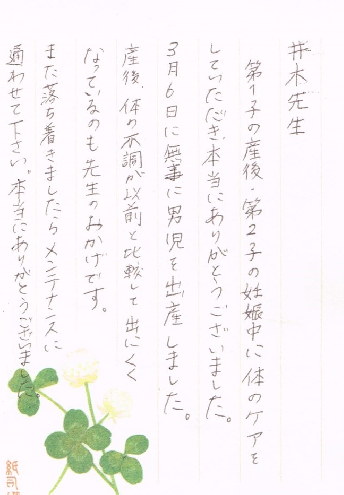 井木先生
第1子の産後・第2子の妊娠中に体のケアを
していただき、本当にありがとうございました。
3月6日に無事に男児を出産しました。
産後、体の不調が以前と比較して出にくく
なっているのも先生のおかげです。
また落ち着きましたらメンテナンスに
通わせて下さい。本当にありがとうございました。